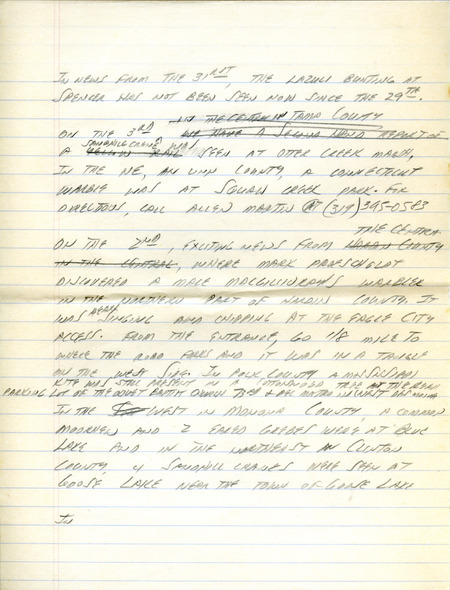 In news from the 31ST, the Lazuli Bunting at
Spencer has not been seen now since the 29TH.
in the central in Tama County
On the 3RD we have a second hand report of
Sandhill Crane was
a seen at Otter Creek Marsh,
In the NE, an Linn County, a Connecticut
Warble was at Squaw Creek Park. For
direction, call Allen Martin at (319) 395-0583
the centra
On the 2ND, exciting news from County
in the central, where Mark Proescholdt
discovered a male MacGillivray's Warbler
in the northern part of Hardin County. It
was singing and chipping at the Eagle City
Access. From the entrance, go 1/8 mile to
where the road forks and it was in a tangle
on the west side. In Polk County a Mississippi
Kite was still present in a cottonwood tree at the rear
parking lot of the Quiet Baptist Church 73rd &
In the West in Monona County, a common
Moorhen and 2 eared grebes were at Blue
Lake and in the northeast in Clinton
County, 4 Sandhill Cranes were seen at
Goose Lake near the town of Goose Lake
In